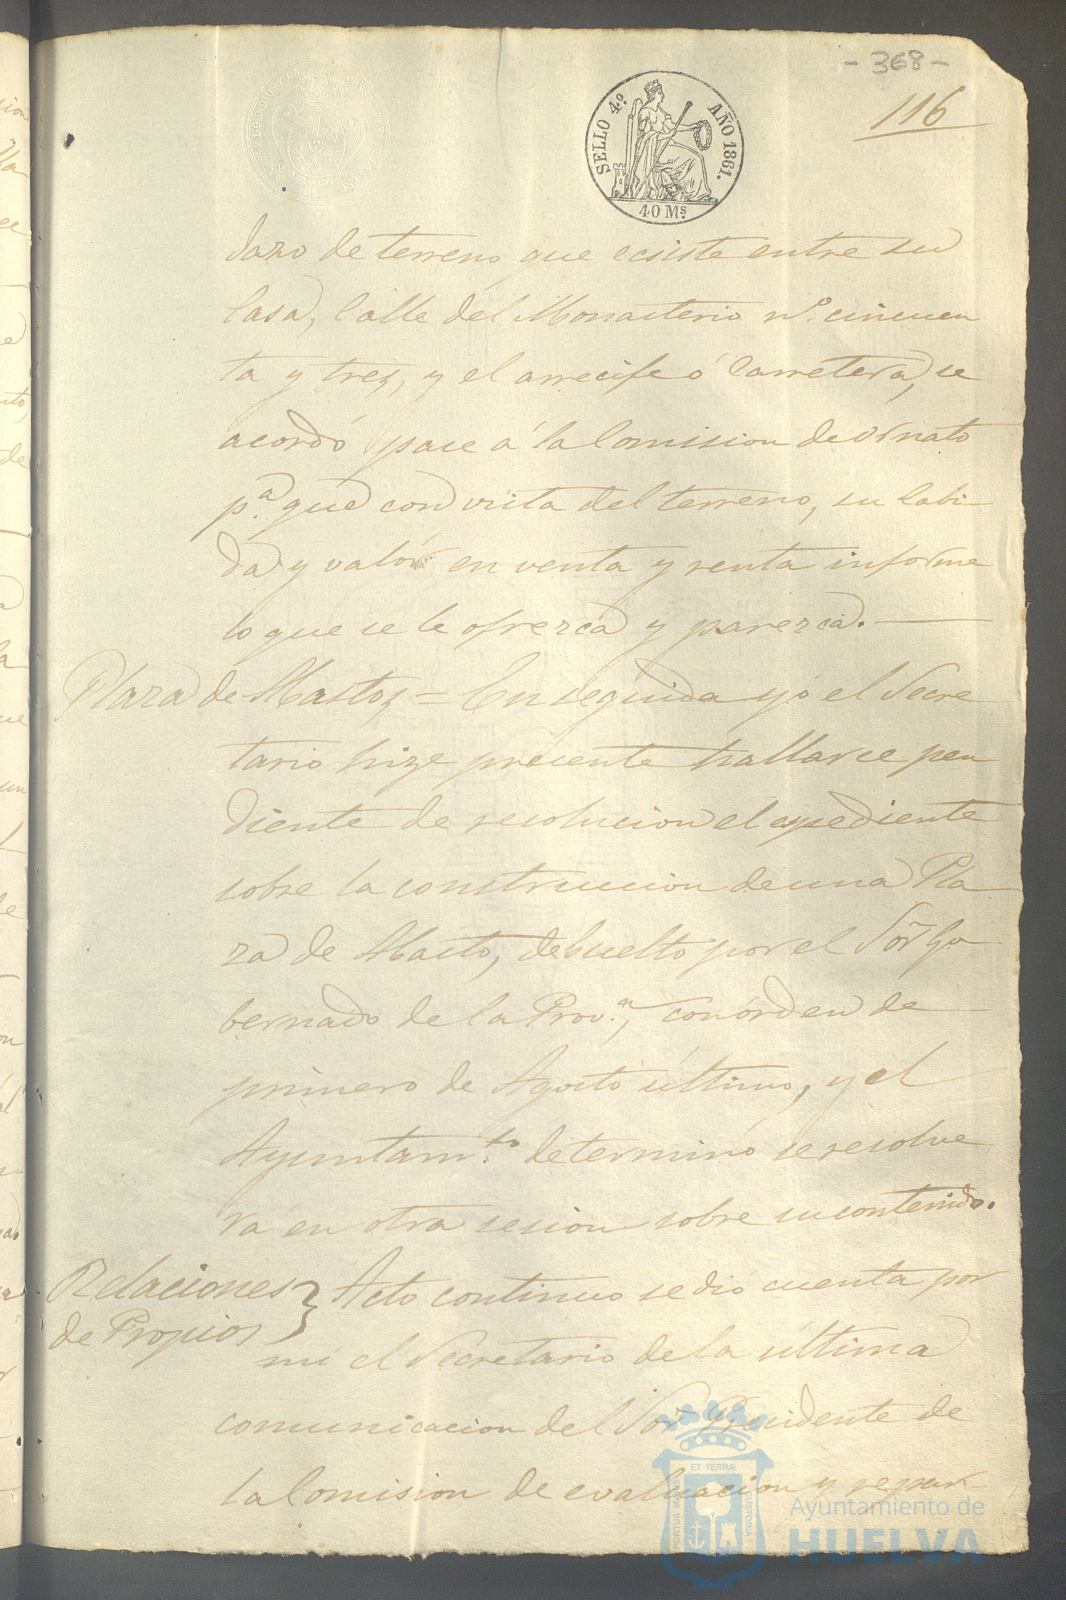 - 368 -
116
SELLO 4.º AÑO 1861.
40 Ms.
dazo de terreno que ecsiste entre su
Casa, Calle del Monasterio nº. cincuen
ta y tres, y el arrecife ó Carretera, se
acordó pase á la Comision de Ornato
p.ª que con vista del terreno, su Cabi-
da y valór en venta y renta informe
lo que se le ofrezca y parezca.
Plaza de Abastos = En seguida yó el Secre
tario hize presente hallarse pen
diente de resolucion el espediente
sobre la construccion de una Pla
za de Abasto, debuelto por el Sor. Go
bernador de la Prov.ª, con órden de
primero de Agosto último, y el
Ayuntam.to determinó se resolve
rá en otra sesion sobre su contenido.
Relaciones
de Propios } Acto continuo se dio cuenta por
mi el Secretario de la última
comunicacion del Sor. Presidente de
la Comision de evaluacion y repar-
ET TERRÆ
PORTUS MARIS
CUSTODIA
Ayuntamiento de
HUELVA